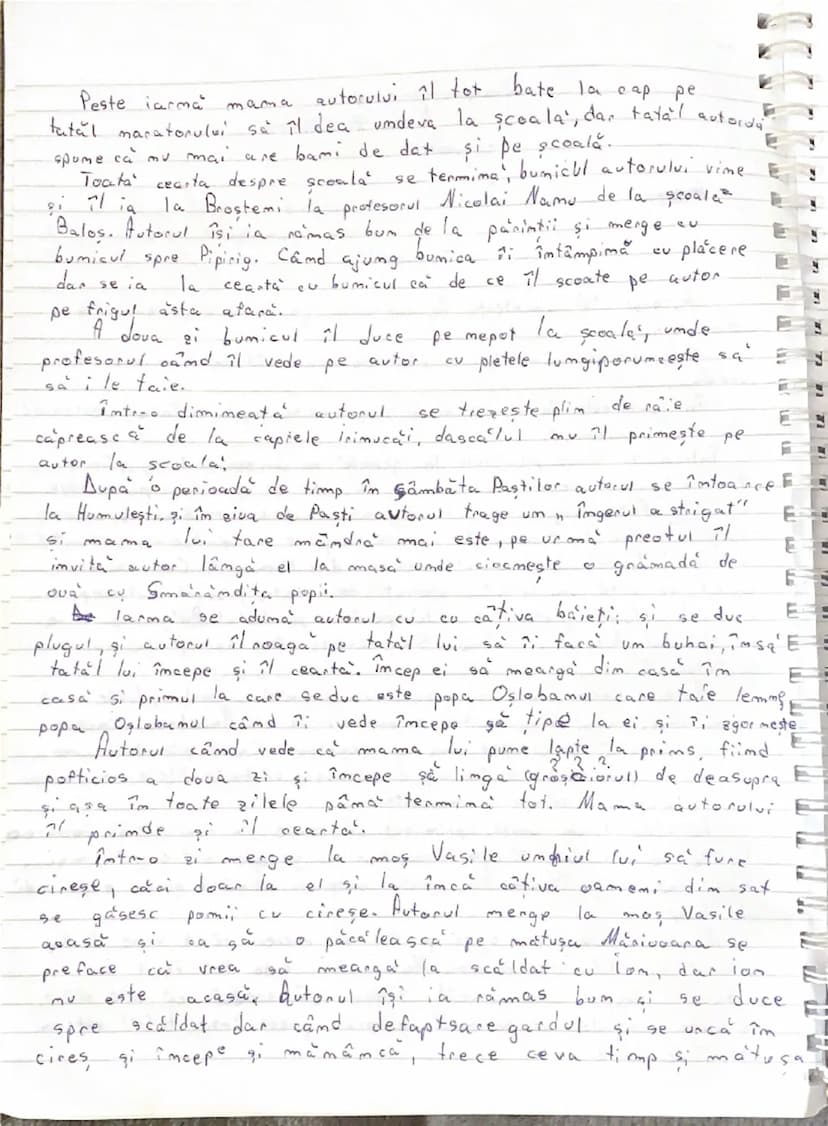 Peste iarnă mama autorului îl tot bate la cap pe
tatăl naratorului să îl dea undeva la școală, dar tatăl autorului
spune că nu mai are bani de dat și pe școală.
Toată cearta despre școală se termină, bunicul autorului vine
și îl ia la Broșteni la profesorul Nicolai Nanu de la școala
Baloș. Autorul își ia rămas bun de la părinții și merge cu
bunicul spre Pipirig. Când ajung bunica îi întâmpină cu plăcere
dar se ia la ceartă cu bunicul că de ce îl scoate pe autor
pe frigul ăsta afară.
A doua zi bunicul îl duce pe nepot la școală, unde
profesorul când îl vede pe autor cu pletele lungi porumcește să
să i le taie.
Într-o dimineață autorul se trezește plin de râie
căprească de la capiele Irinucăi, dascălul nu îl primește pe
autor la școală.
După o perioadă de timp în Sâmbăta Paștilor autorul se întoarce
la Humulești, și în ziua de Paști autorul trage un „ Îngerul a strigat"
și mama lui tare mândră mai este, pe urmă preotul îl
invită autor lângă el la masă unde ciocnește o grămadă de
ouă cu Smărăndița popii.
Iarna se adună autorul cu cu câțiva băieți; și se duc
plugul, și autorul îl roagă pe tatăl lui să îi facă un buhai, însă
tatăl lui începe și îl ceartă. Încep ei să meargă din casă în
casă și primul la care se duc este popa Oșlobanul care taie lemne,
popa Oșlobanul când îi vede începe să țipe la ei și îi zgornește
Autorul când vede că mama lui pune lapte la prins, fiind
pofticios a doua zi și începe să lingă (groșciorul) de deasupra
???
și așa în toate zilele până termină tot. Mama autorului
îl prinde și îl ceartă.
Într-o zi merge la moș Vasile unchiul lui să fure
cireșe, căci doar la el și la încă câțiva oameni din sat
se găsesc pomii cu cireșe. Autorul merge la moș Vasile
acasă și ca să o păcălească pe mătușa Mărioara se
preface că vrea să meargă la scăldat cu Ion, dar ion
nu este acasă. Autorul își ia rămas bun și se duce
spre scăldat dar când defapt sare gardul și se urcă în
cireș și începe și mănâncă, trece ceva timp și mătușa